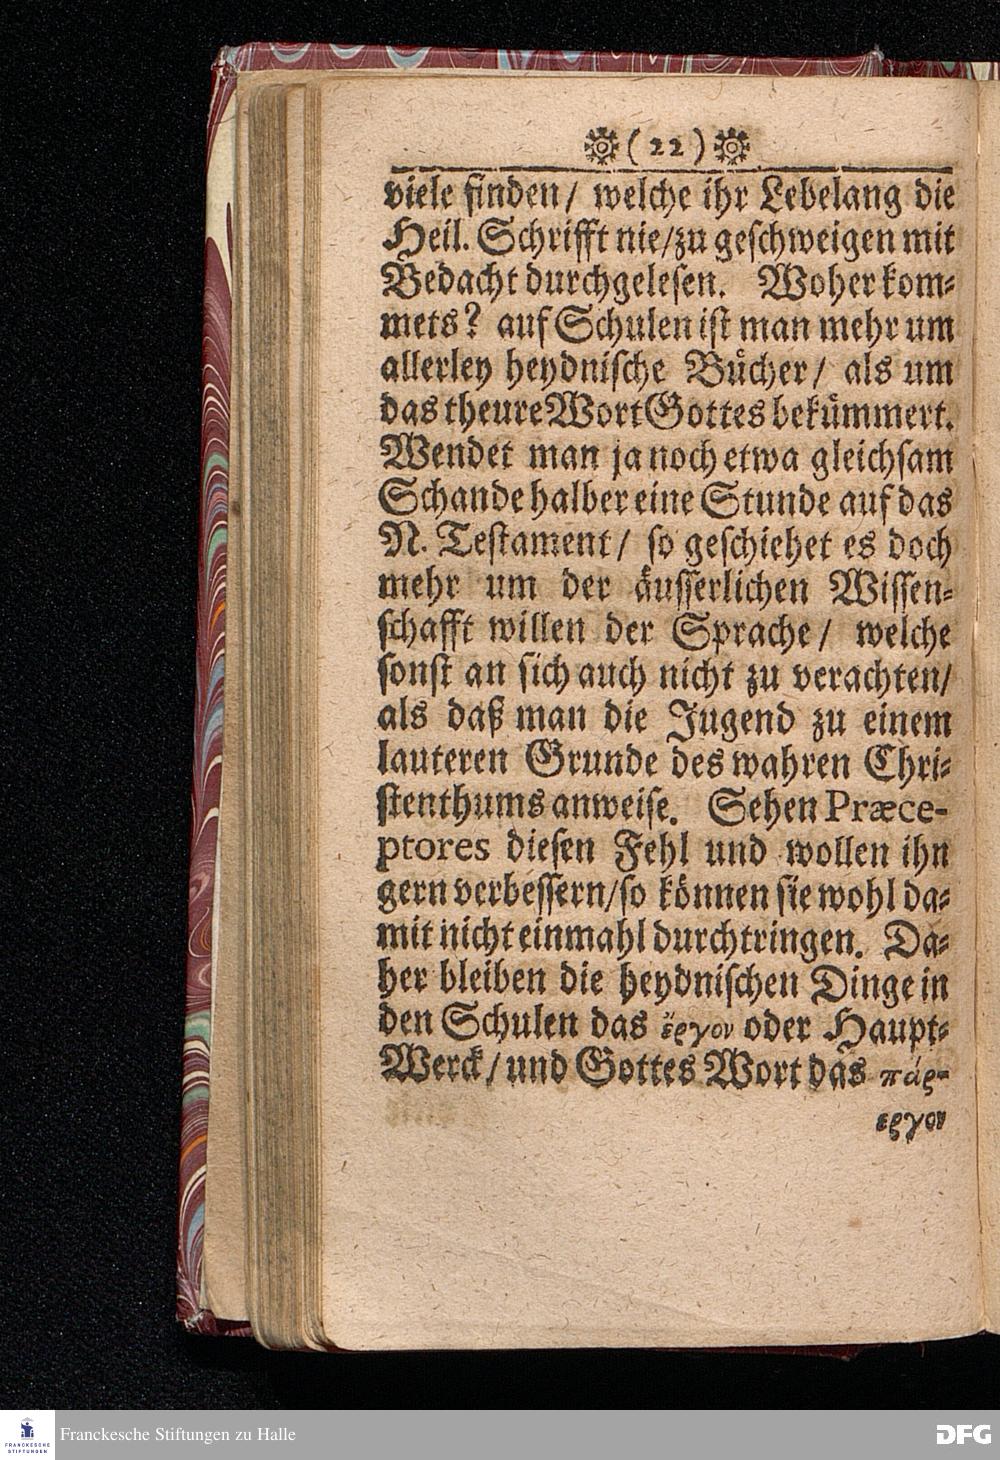 ( 22 )
viele finden/ welche ihr Lebelang die
Heil. Schrifft nie/zu geschweigen mit
Bedacht durchgelesen. Woher kom-
mets? auf Schulen ist man mehr um
allerley heydnische Bücher/ als um
das theure Wort Gottes bekümmert.
Wendet man ja noch etwa gleichsam
Schande halber eine Stunde auf das
N. Testament/ so geschiehet es doch
mehr um der äusserlichen Wissen-
schafft willen der Sprache/ welche
sonst an sich auch nicht zu verachten/
als daß man die Jugend zu einem
lauteren Grunde des wahren Chri-
stenthums anweise. Sehen Præce-
ptores diesen Fehl und wollen ihn
gern verbessern/so können sie wohl da-
mit nicht einmahl durchtringen. Da-
her bleiben die heydnischen Dinge in
den Schulen das ἔργον oder Haupt-
Werck/und Gottes Wort das πάρ-
εργον
FRANCKESCHE
STIFTUNGEN
Franckesche Stiftungen zu Halle
DFG